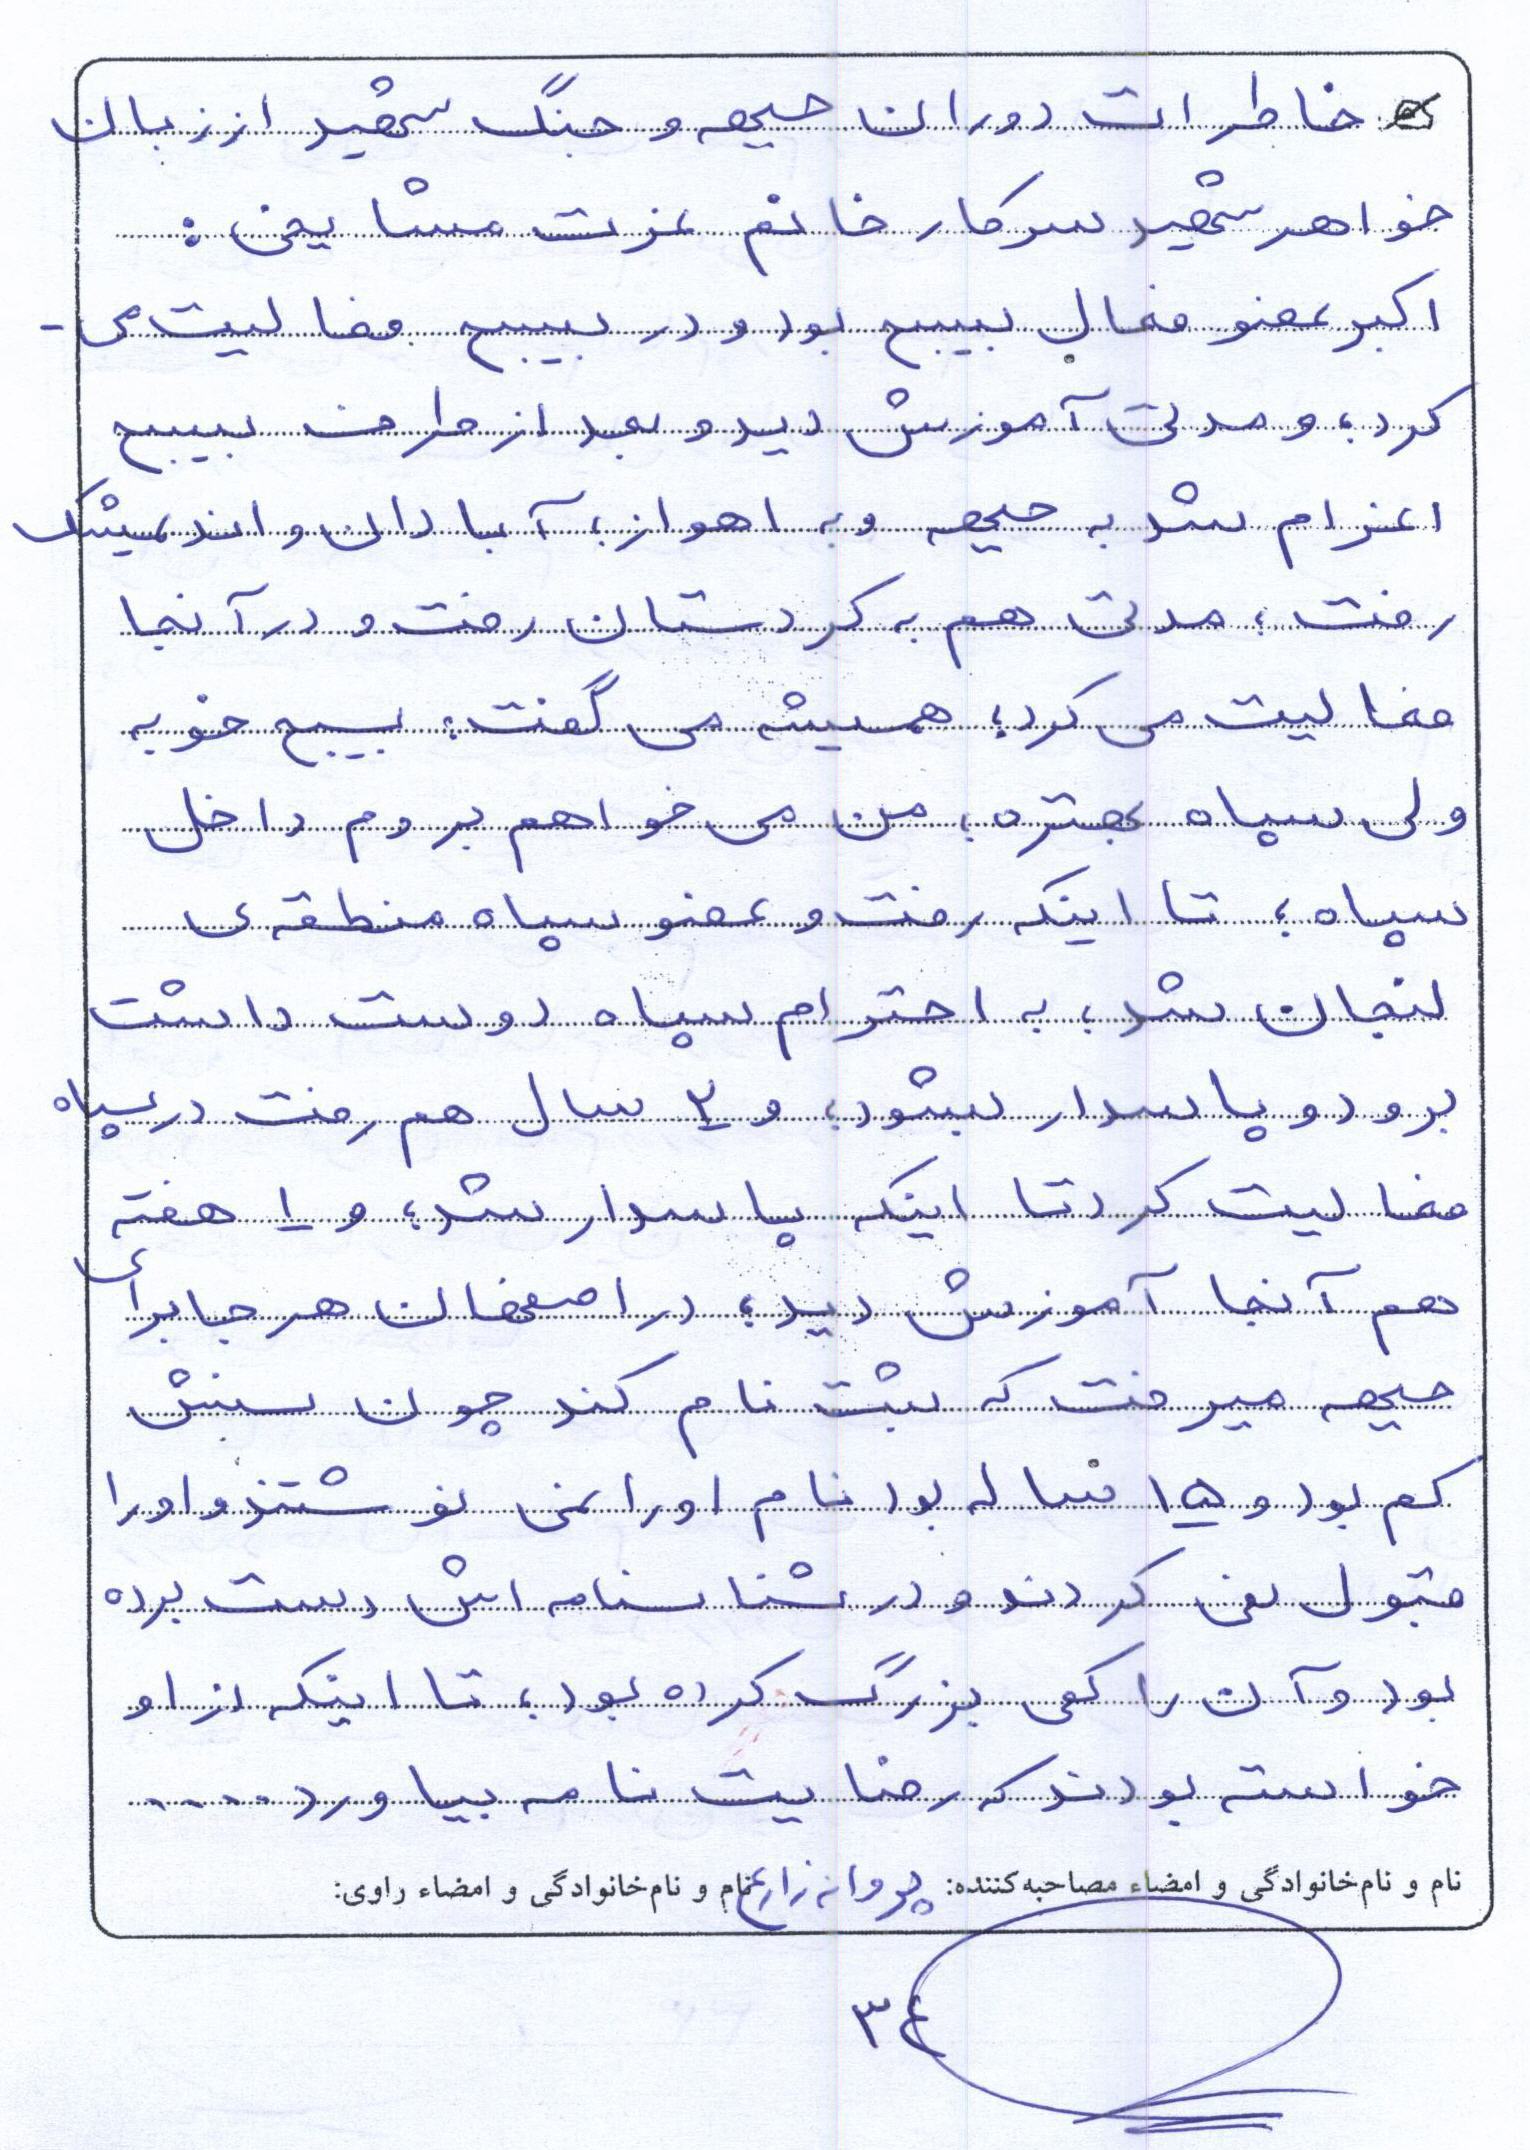 خاطرات دوران جبهه و جنگ شهید از زبان
خواهر شهید سرکار خانم عزت مشایخی :
اکبر عضو فعال بسیج بود و در بسیج فعالیت می -
کرد، و مدتی آموزش دید و بعد از طرف بسیج
اعزام شد به جبهه و به اهواز، آبادان و اندیمشک
رفت، مدتی هم به کردستان رفت و در آنجا
فعالیت می کرد، همیشه می گفت: بسیج خوبه
ولی سپاه بهتره، من می خواهم بروم داخل
سپاه، تا اینکه رفت و عضو سپاه منطقه ی
لنجان شد، به احترام سپاه دوست داشت
برود و پاسدار بشود، و ۲ سال هم رفت در سپاه
فعالیت کرد تا اینکه پاسدار شد، و ۱ هفته
هم آنجا آموزش دید، در اصفهان هر جا برای
جبهه میرفت که ثبت نام کند چون سنش
کم بود و ۱۵ ساله بود نام او را نمی نوشتند و او را
قبول نمی کردند و در شناسنامه اش دست برده
بود و آن را کمی بزرگ کرده بود، تا اینکه از او
خواسته بودند که رضایت نامه بیاورد .....
نام و نام‌خانوادگی و امضاء مصاحبه‌کننده: پروانه زارع نام و نام‌خانوادگی و امضاء راوی:
۳۴